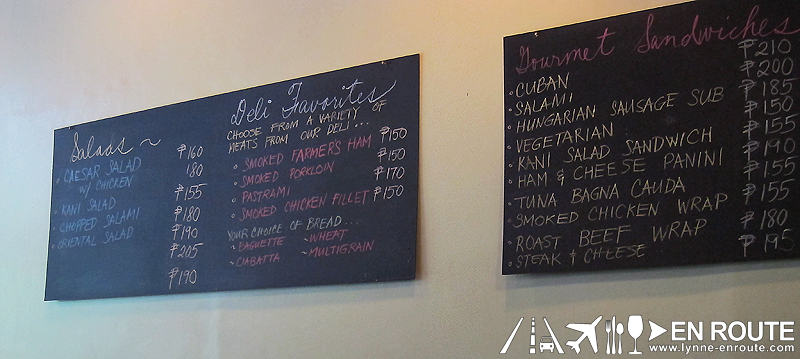 Salads ~
₱160
• CAESAR SALAD 180
W/ CHICKEN ₱155
• KANI SALAD ₱180
• CHOPPED SALAMI ₱190
• ORIENTAL SALAD ₱205
₱190
Deli Favorites
CHOOSE FROM A VARIETY OF
MEATS FROM OUR DELI...
• SMOKED FARMER'S HAM ₱150
• SMOKED PORKLOIN ₱150
• PASTRAMI ₱170
• SMOKED CHICKEN FILLET ₱150
YOUR CHOICE OF BREAD...
~ BAGUETTE ~ WHEAT
~ CIABATTA ~ MULTIGRAIN
Gourmet Sandwiches
• CUBAN ₱210
• SALAMI ₱200
• HUNGARIAN SAUSAGE SUB ₱185
• VEGETARIAN ₱150
• KANI SALAD SANDWICH ₱155
• HAM & CHEESE PANINI ₱190
• TUNA BAGNA CAUDA ₱155
• SMOKED CHICKEN WRAP ₱155
• ROAST BEEF WRAP ₱180
• STEAK & CHEESE ₱195
EN ROUTE
www.lynne-enroute.com